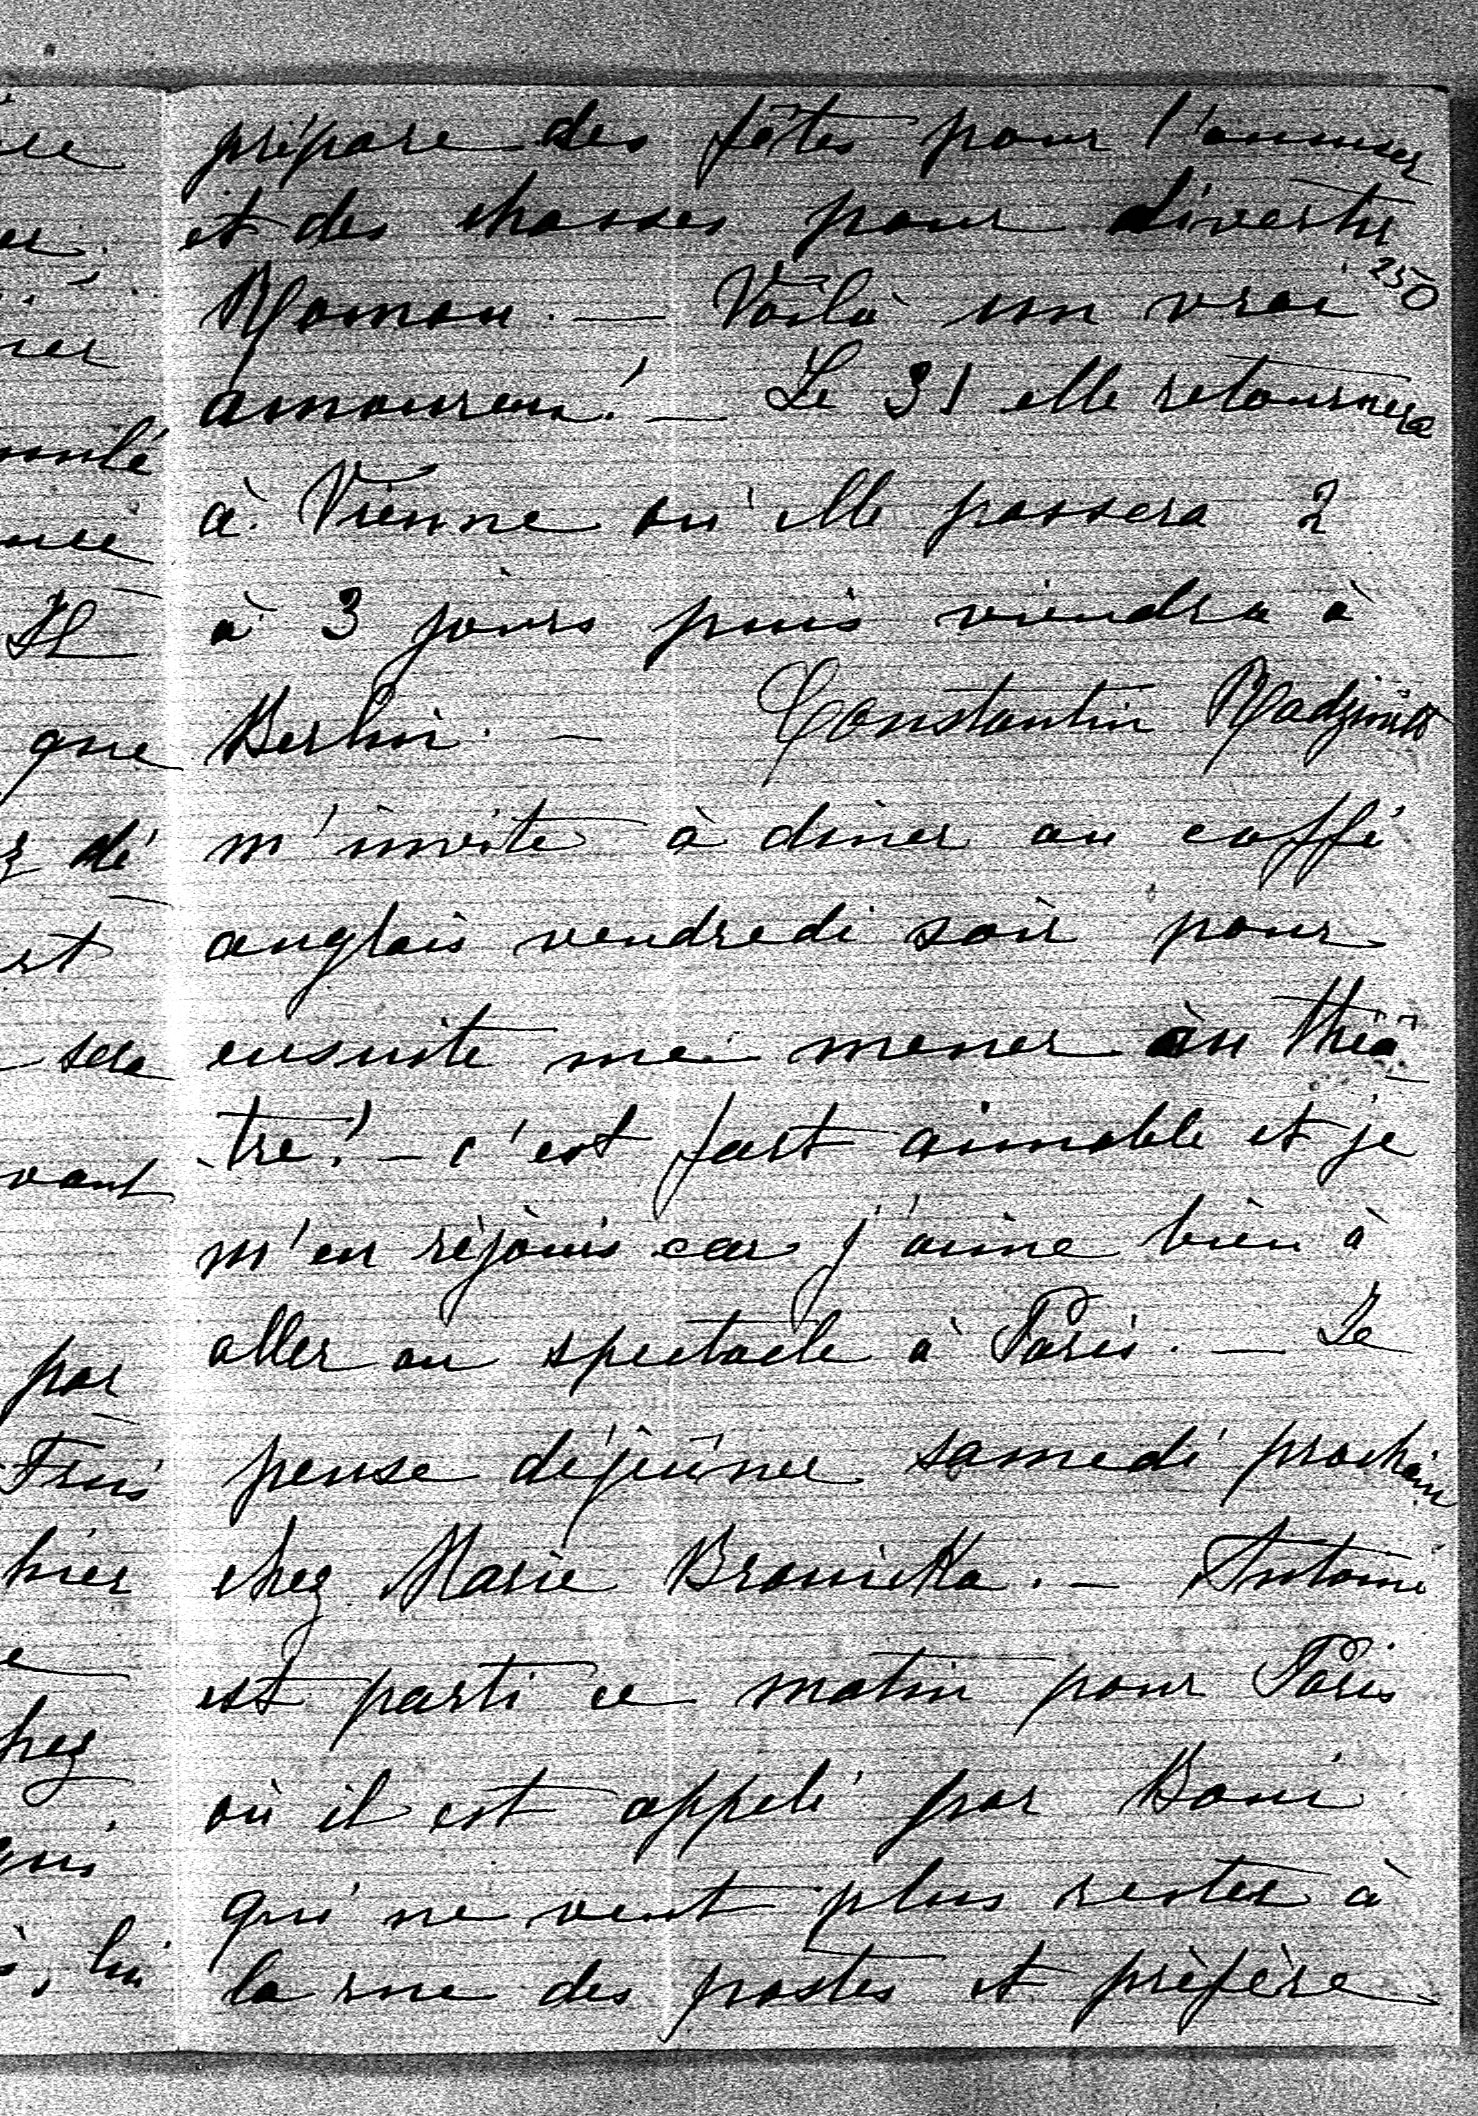 prépare des fêtes pour l'amuser
et des chasses pour divertir
250
Roman. — Voilà un vrai
amoureux! — Le 31 elle retournera
à Vienne où elle passera 2
à 3 jours puis viendra à
Berlin. — Constantin Radziwill
m'invite à diner au caffé
anglais vendredi soir pour
ensuite me mener au théâ
tre! — c'est fort aimable et je
m'en réjouis car j'aime bien à
aller au spectacle à Paris. — Je
pense déjeûner samedi prochain
chez Marie Branicka. — Antoine
est parti ce matin pour Paris
où il est appelé par Boni
qui ne veut plus rester à
la rue des postes et préfère
que
dé
sera
vant
par
hier
chez
lui